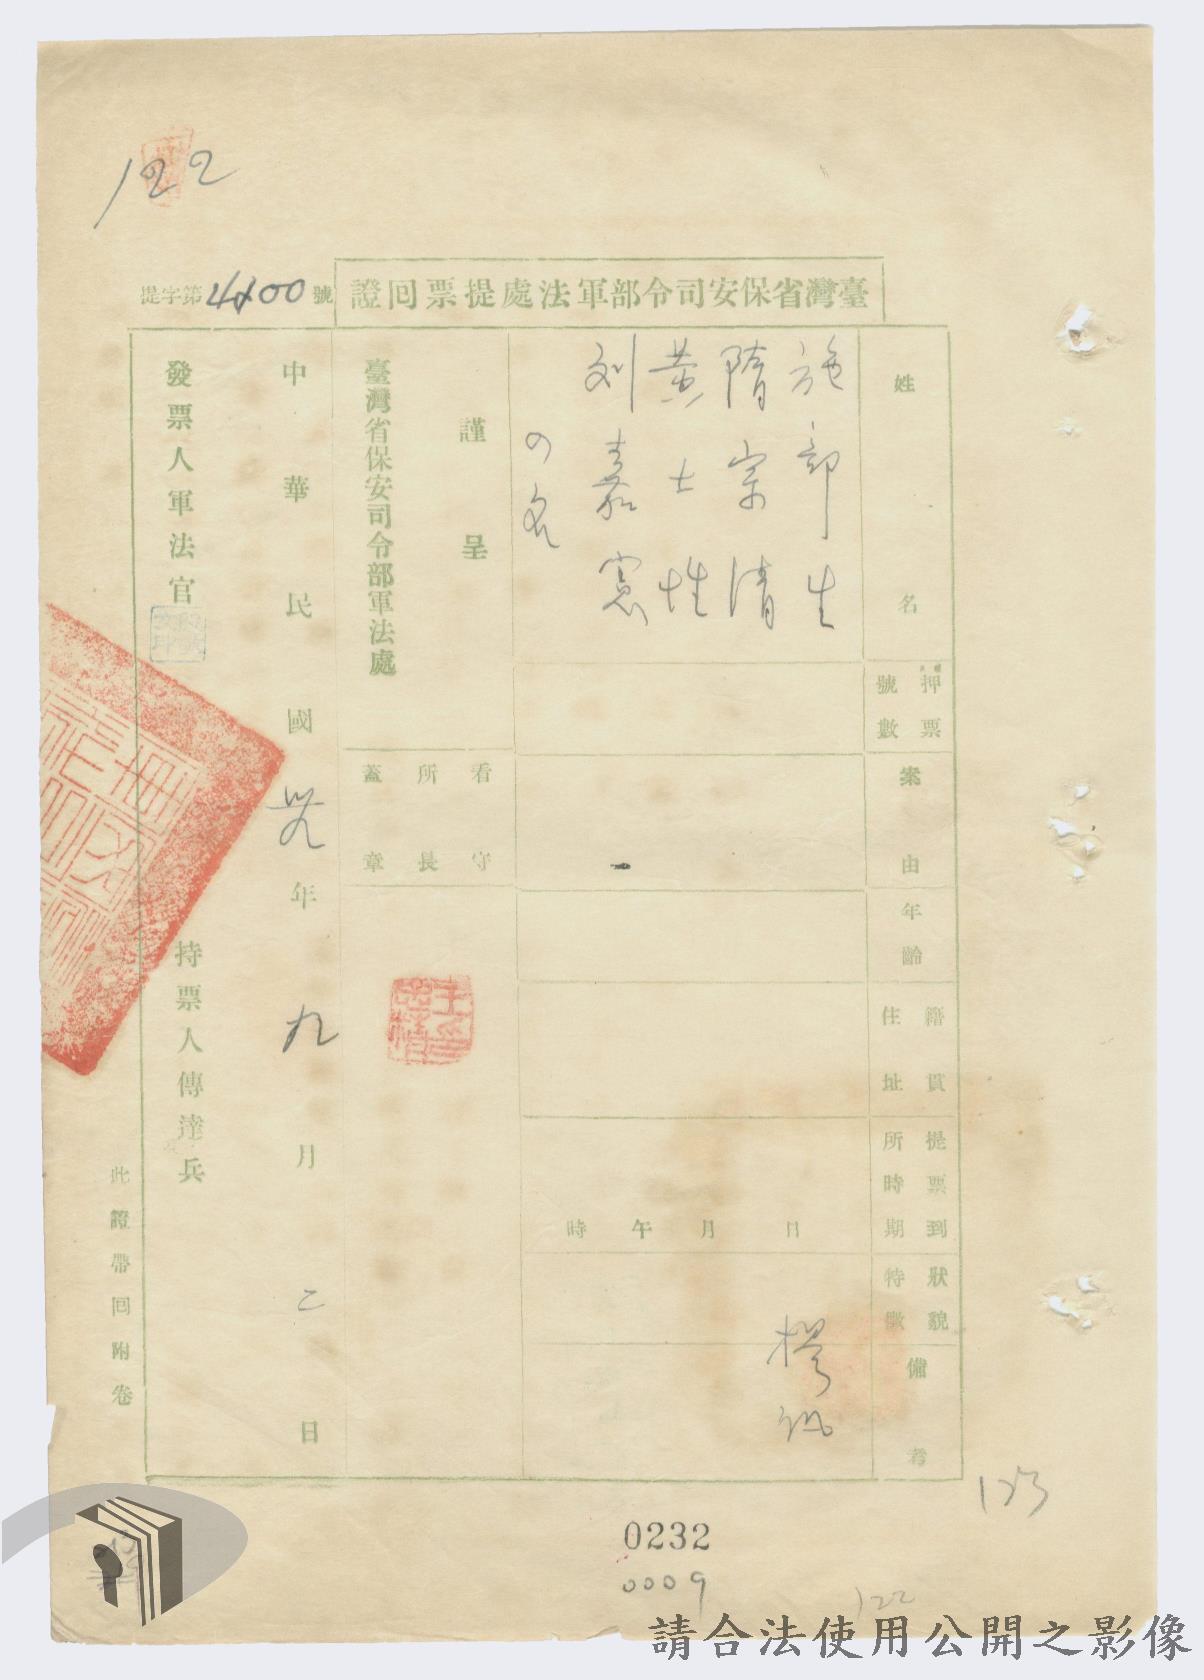 122
臺灣省保安司令部軍法處提票回證
提字第4400號
姓名
施部生
隋宗清
黃士性
刘嘉憲
の名
押票號數
案由
年齡
籍貫住址
提票到所時期
日 月 午 時
狀貌特徵
備考
謹呈
臺灣省保安司令部軍法處
看守所長蓋章
中華民國卅九年九月二日
發票人軍法官
持票人傳達兵
此證帶回附卷
123
0232
0009
122
請合法使用公開之影像